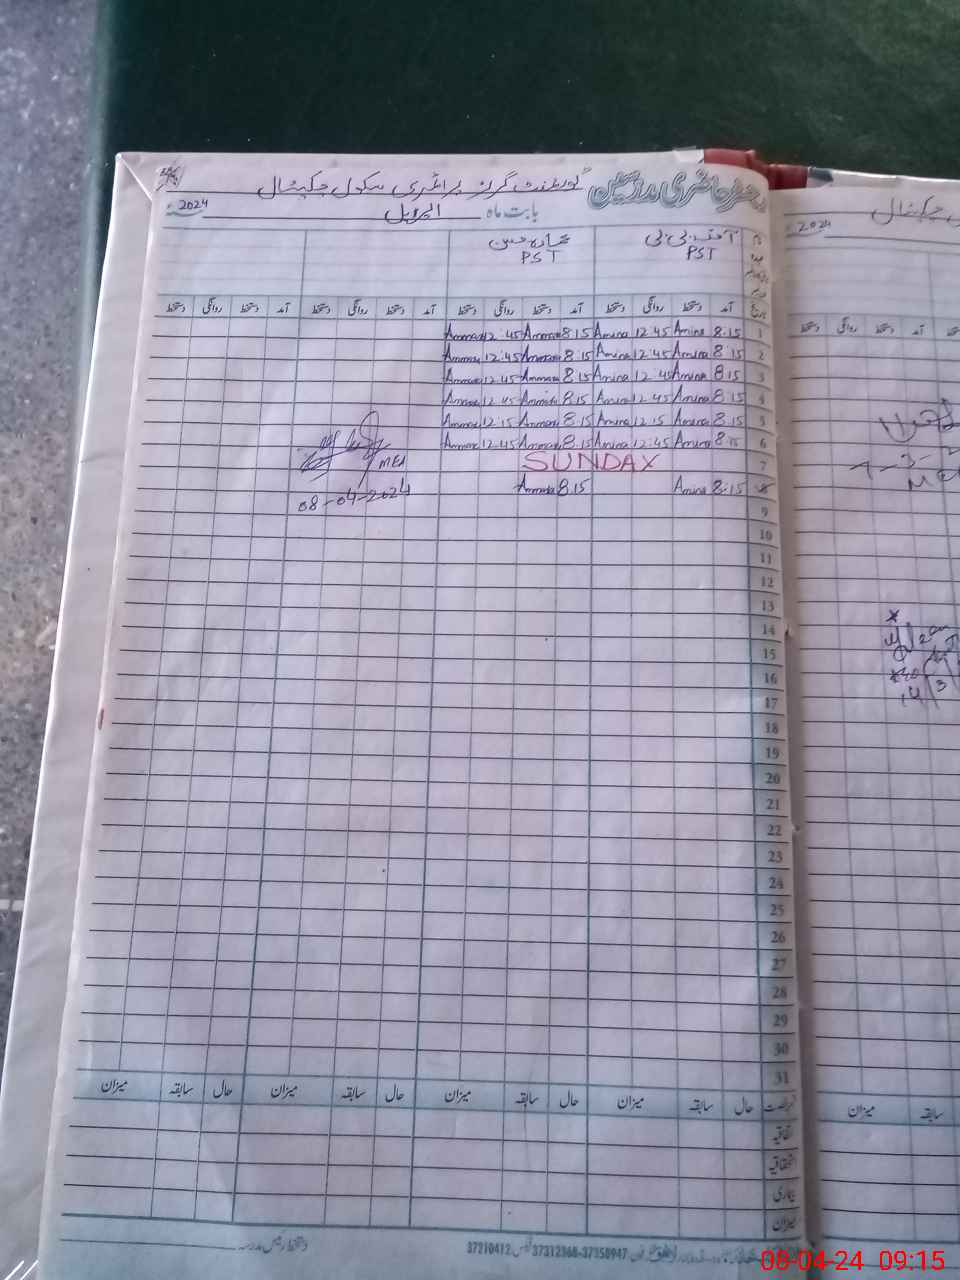 رجسٹر حاضری مدرسین گورنمنٹ گرلز پرائمری سکول
بابت ماہ اپریل 2024ء
نام
PST PST
تاریخ آمد دستخط روانگی دستخط آمد دستخط روانگی دستخط آمد دستخط روانگی دستخط آمد دستخط روانگی دستخط
1 8.15 Amina 12:45 Amina 8.15 Ammara 12:45 Ammara
2 8.15 Amina 12:45 Amina 8.15 Ammara 12:45 Ammara
3 8.15 Amina 12:45 Amina 8.15 Ammara 12.45 Ammara
4 8.15 Amina 12.45 Amina 8.15 Ammara 12.45 Ammara
5 8.15 Amina 12.15 Amina 8.15 Ammara 12:15 Ammara
6 8.15 Amina 12:45 Amina 8.15 Ammara 12.45 Ammara
7 SUNDAY
MEA
8.15 Amina 8.15 Ammara
08-04-2024
9
10
11
12
13
14
15
16
17
18
19
20
21
22
23
24
25
26
27
28
29
30
31
رخصت حال سابقہ میزان حال سابقہ میزان حال سابقہ میزان حال سابقہ میزان
اتفاقیہ
استحقاقیہ
بیماری
میزان
دستخط رئیس مدرسہ
37312368-37358947 فیکس 37210412
2024
دستخط روانگی دستخط آمد
سابقہ میزان
08-04-24 09:15